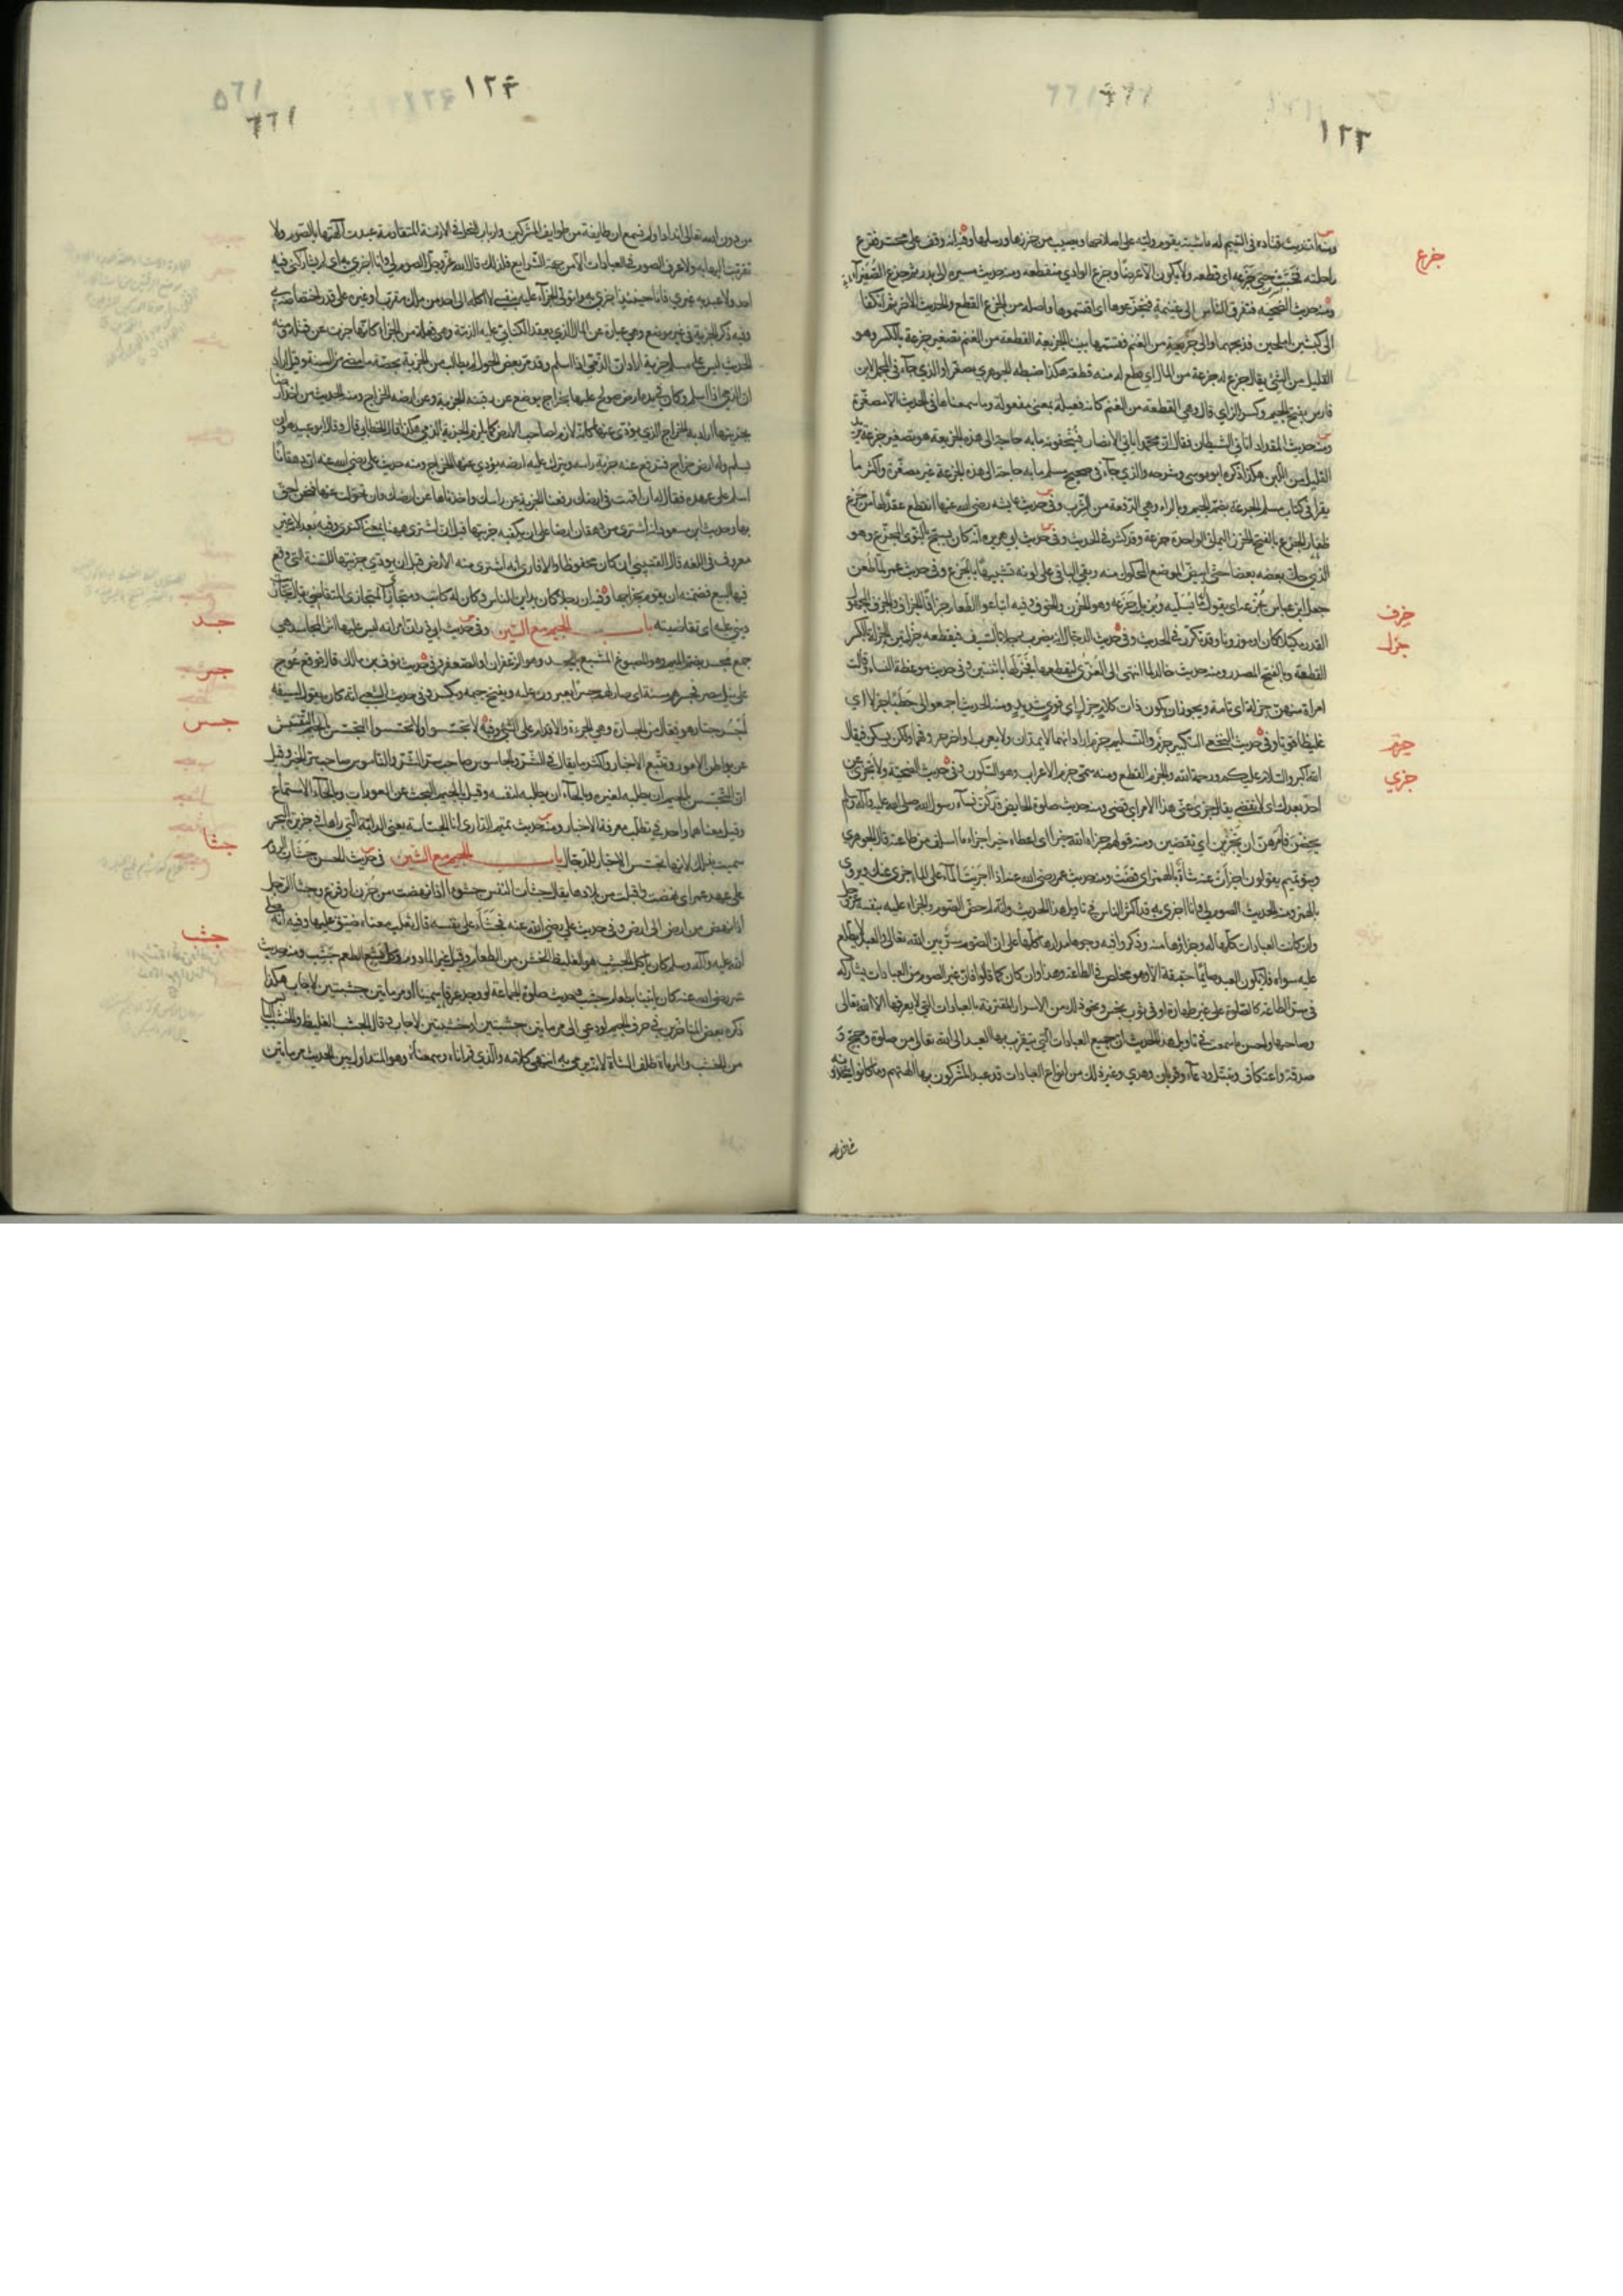 ١٢٣
ومنه حديث قتادة في اليتيم له ماشية يقوم وليه على اصلاحها ويصيب من جزرها ورسلها وفيه انه وقف على محسر فقرع
جزع
راحلته فخبت حتى جزعه اى قطعه ولا يكون الا عرضا وجزع الوادي منقطعه ومنه حديث مسيره الى بدر ثم جزع الصفيراء
ومنه حديث الضحية فتفرق الناس الى غنيمة فتجزعوها اى اقتسموها واصله من الجزع القطع والحديث الاخر ثم انكفا
الى كبشين املحين فذبحهما والى جزيعة من الغنم فقسمها بيننا الجزيعة القطعة من الغنم تصغير جزعة بالكسر وهو
القليل من الشئ يقال جزع له جزعة من المال اي قطع له منه قطعة هكذا ضبطه الجوهري مصغرا والذي جآء في المجمل لابن
فارس بفتح الجيم وكسر الزاي قال وهي القطعة من الغنم كانه فعيلة بمعنى مفعولة وما سمعناها في الحديث الا مصغرة
ومنه حديث المقداد اتاني الشيطان فقال ان محمدا ياتي الانصار فيتحفونه ما به حاجة الى هذه الجزيعة هي تصغير جزعة يريد
القليل من اللبن هكذا ذكره ابو موسى وشرحه والذي جآء في صحيح مسلم ما به حاجة الى هذه الجزعة غير مصغرة واكثر ما
يقرأ في كتاب مسلم الجرعة بضم الجيم وبالراء وهي الدفعة من الشرب وفي حديث عايشه رضي الله عنها انقطع عقد لها من جزع
ظفار الجزع بالفتح الخرز اليماني الواحدة جزعة وقد كثر في الحديث وفي حديث ابي هريره انه كان يسبح بالنوى المجزع وهو
الذي حك بعضه بعضا حتى ابيض الموضع المحكوك منه وبقي الباقي على لونه تشبيها بالجزع وفي حديث عمر لما طعن
جعل ابن عباس يجزعه اى يقول له ما يسليه ويزيل جزعه وهو الحزن والخوف وفيه ابتاعوا الطعام جزافا الجزاف والجزف المجهول
جزف
القدر مكيلا كان او موزونا وقد تكرر في الحديث وفي حديث الدجال انه يضرب رجلا بالسيف فيقطعه جزلتين الجزلة بالكسر
جزل
القطعة وبالفتح المصدر ومنه حديث خالد لما انتهى الى العزى ليقطعها فجزلها باثنتين وفي حديث موعظة النساء قالت
امراة منهن جزلة اى تامة ويجوز ان يكون ذات كلام جزل اى قوي شديد ومنه الحديث اجمعوا لى حطبا جزلا اى
غليظا قويا وفي حديث النخعي التكبير جزم والتسليم جزم اراد انهما لا يمدان ولا يعرب اواخر حروفهما ولكن يسكن فيقال
جزم
الله اكبر والسلام عليكم ورحمة الله والجزم القطع ومنه سمى جزم الاعراب وهو السكون وفي حديث الضحية ولا تجزي عن
جزي
احد بعدك اى لا تقضى يقال جزى عنى هذا الامر اى قضى ومنه حديث صلوة الحايض قد كن نسآء رسول الله صلى الله عليه وآله وسلم
يحضن فامرهن ان يجزين اي يقضين ومنه قولهم جزاه الله خيرا اى اعطاه خير اجزاء ما اسلف من طاعته قال الجوهري
وبنو تميم يقولون اجزأت عنه شاة بالهمز اى قضت ومنه حديث عمر رضي الله عنه اذا اجريت المآء على المآء جزى عنك ويروى
بالهمز ومنه الحديث الصوم لى وانا اجزى به قد اكثر الناس في تاويل هذا الحديث وانه لم خص الصوم والجزاء عليه بنفسه عز وجل
وان كانت العبادات كلها له وجزاؤها منه وذكروا فيه وجوها مدارها كلها على ان الصوم سر بين الله تعالى والعبد لا يطلع
عليه سواه فلا يكون العبد صائما حقيقة الا وهو مخلص في الطاعة وهذا وان كان كما قالوا فان غير الصوم من العبادات يشاركه
في سر الطاعة كالصلوة على غير طهارة او في ثوب نجس ونحو ذلك من الاسرار المقترنة بالعبادات التي لا يعرفها الا الله تعالى
وصاحبها واحسن ما سمعت في تاويل هذا الحديث ان جميع العبادات التي يتقرب بها العبد الى الله تعالى من صلوة وحج و
صدقة واعتكاف وتبتل ودعآء وقربان وهدي وغير ذلك من انواع العبادات قد عبد المشركون بها الهتهم وما كانوا يتخذونه
١٢٤
١٦٦
من دون الله تعالى اندادا ولم نسمع ان طايفة من طوايف المشركين وارباب النحل في الازمنة المتقادمة عبدت آلهتها بالصوم ولا
تقربت اليها به ولا عرف الصوم في العبادات الا من جهة الشرايع فلذلك قال الله عز وجل الصوم لي وانا اجزى به اى لم يشاركني فيه
احد ولا عبد به غيري فانا حينئذ اجزى به واتولى الجزآء عليه بنفسي لا اكله الى احد من ملك مقرب او غيره على قدر اختصاصه بي
وفيه ذكر الجزية في غير موضع وهي عبارة عن المال الذي يعقد الكتابي عليه الذمة وهي فعلة من الجزاء كانها جزت عن قتله ومنه
الحديث ليس على مسلم جزية اراد ان الذمي اذا اسلم وقد مر بعض الحول لم يطالب من الجزية بحصة ما مضى من السنة وقيل اراد
ان الذمي اذا اسلم وكان في يده ارض صولح عليها بخراج يوضع عن رقبته الجزية وعن ارضه الخراج ومنه الحديث من اخذ ارضا
بجزيتها اراد به الخراج الذي يؤدى عنها كانه لازم لصاحب الارض كما تلزم الجزية الذمي هكذا قال الخطابي قال وقال ابو عبيد هو ان
يسلم وله ارض خراج فترفع عنه جزية راسه ويترك عليه ارضه يؤدي عنها الخراج ومنه حديث على رضي الله عنه ان دهقانا
اسلم على عهده فقال له ان اقمت في ارضك رفعنا الجزية عن راسك واخذناها عن ارضك وان تحولت عنها فنحن احق
بها وحديث ابن مسعود انه اشترى من دهقان ارضا على ان يكفيه جزيتها قيل ان اشترى ههنا بمعنى اكترى وفيه بعد لانه غير
معروف في اللغه قال القتيبي ان كان محفوظا والا فارى انه اشترى منه الارض قبل ان يؤدي جزيتها للسنة التي وقع
فيها البيع فضمنه ان يقوم بخراجها وفيه ان رجلا كان يداين الناس وكان له كاتب ومتجاز المتجازي المتقاضي يقال تجازيت
ديني عليه اى تقاضيته باب الجيم مع السين وفي حديث ابي ذر ان امراته ليس عليها اثر المجاسد هي
جسد
جمع مجسد بضم الميم وهو المصبوغ المشبع بالجسد وهو الزعفران او العصفر وفي حديث نوف بن مالك قال فوقع عوج
على نيل مصر فجسرهم سنة اى صار لهم جسرا يعبرون عليه وتفتح جيمه وتكسر وفي حديث الشعبي انه كان يقول لسيفه
جسر
اجسر جسار هو فعال من الجسارة وهي الجراءة والاقدام على الشئ وفيه لا تجسسوا ولا تحسسوا التجسس بالجيم التفتيش
جسس
عن بواطن الامور وتتبع الاخبار واكثر ما يقال في الشر والجاسوس صاحب سر الشر والناموس صاحب سر الخير وقيل
ان التجسس بالجيم ان يطلبه لغيره وبالحآء ان يطلبه لنفسه وقيل بالجيم البحث عن العورات وبالحآء الاستماع
وقيل معناهما واحد في تطلب معرفة الاخبار ومنه حديث تميم الداري انا الجساسة يعنى الدابة التي راها في جزيرة البحر
سميت بذلك لانها تجسس الاخبار للدجال باب الجيم مع الشين في حديث الحسن جشأت الروم
جشا
على عهد عمر اى نهضت واقبلت من بلادها يقال جشأت النفس جشوءا اذا نهضت من حزن او فزع وجشأ الرجل
اذا نهض من ارض الى ارض وفي حديث على رضي الله عنه فجشأ على نفسه قال ثعلب معناه ضيق عليها وفيه انه صلى
الله عليه وآله وسلم كان ياكل الجشب هو الغليظ الخشن من الطعام وقيل غير المادوم وكل بشع الطعم جشب ومنه حديث
جشب
عمر رضي الله عنه كان ياتينا بطعام جشب وحديث صلوة الجماعة لو وجد عرقا سمينا او مرماتين جشبتين لاجاب هكذا
ذكره بعض المتاخرين في حرف الجيم لو دعي الى مرماتين جشبتين او خشبتين لاجاب وقال الجشب الغليظ والخشب اليابس
من الخشب والمرماة ظلف الشاة لانه يرمى به انتهى كلامه والذي قراناه وسمعناه وهو المتداول بين الحديث مرماتين